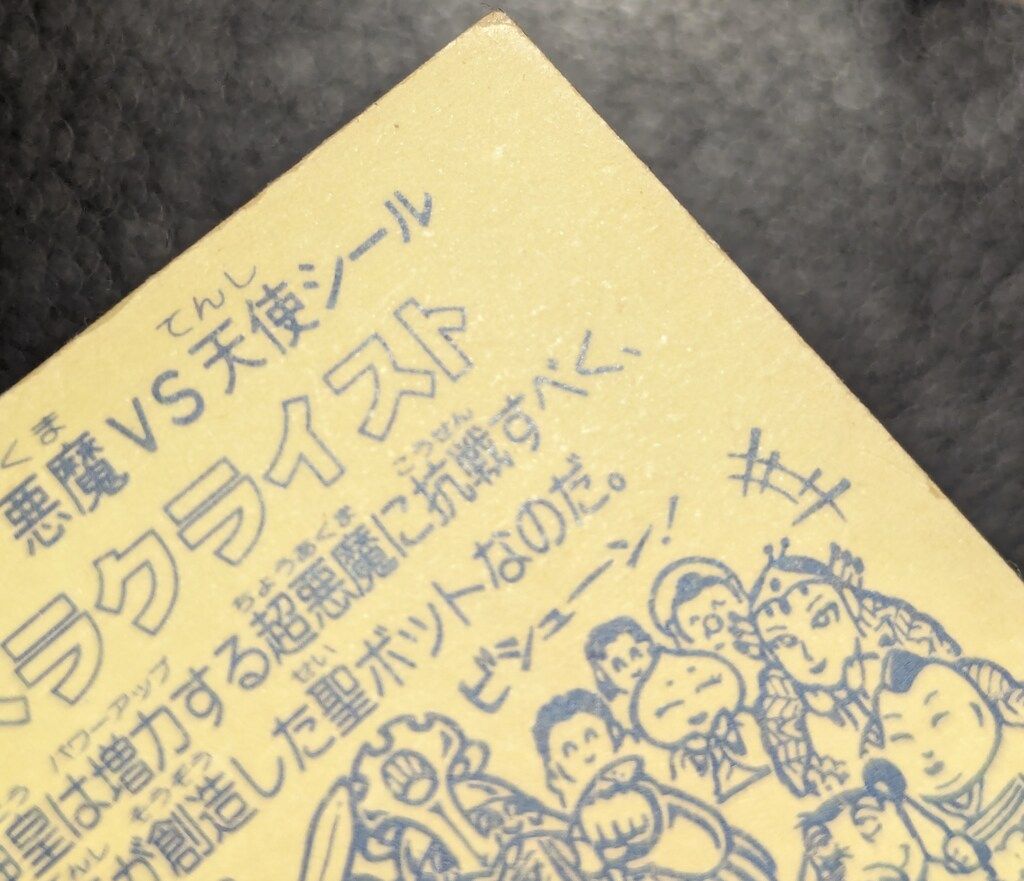 くま てんし
悪魔VS天使シール
ラクライスト
パワーアップ ちょうあくま こうせん
皇は増力する超悪魔に抗戦すべく、
そうぞう せい
が創造した聖ボットなのだ。
ビシューーン!